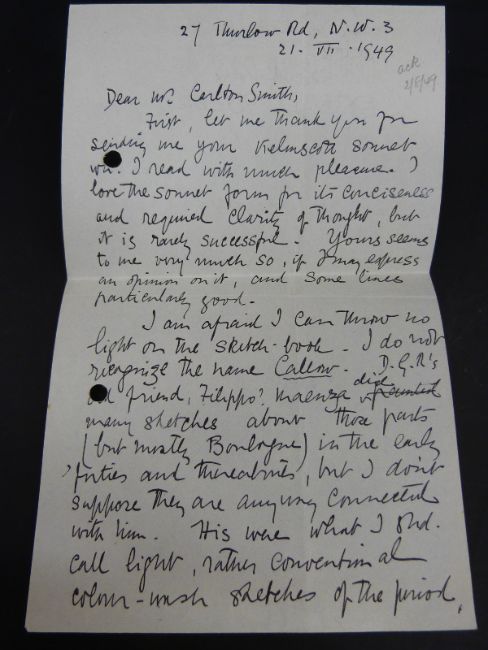 27 Thurlow Rd, N.W.3
21. VII. 1949
ack
2/8/49
Dear Mr Carlton Smith,
First, let me thank you for
sending me your Kelmscott sonnet
wh. I read with much pleasure. I
love the sonnet form for its conciseness
and required clarity of thought, but
it is rarely successful. Yours seems
to me very much so, if I may express
an opinion on it, and some lines
particularly good.
I am afraid I can throw no
light on the sketch-book. I do not
recognize the name Callow. D.G.R's
old friend, Filippo? Maenza did
many sketches about those parts
(but mostly Boulogne) in the early
'forties and thereabouts, but I don't
suppose they are anyway connected
with him. His were what I shd.
call light, rather conventional
colour-wash sketches of the period,